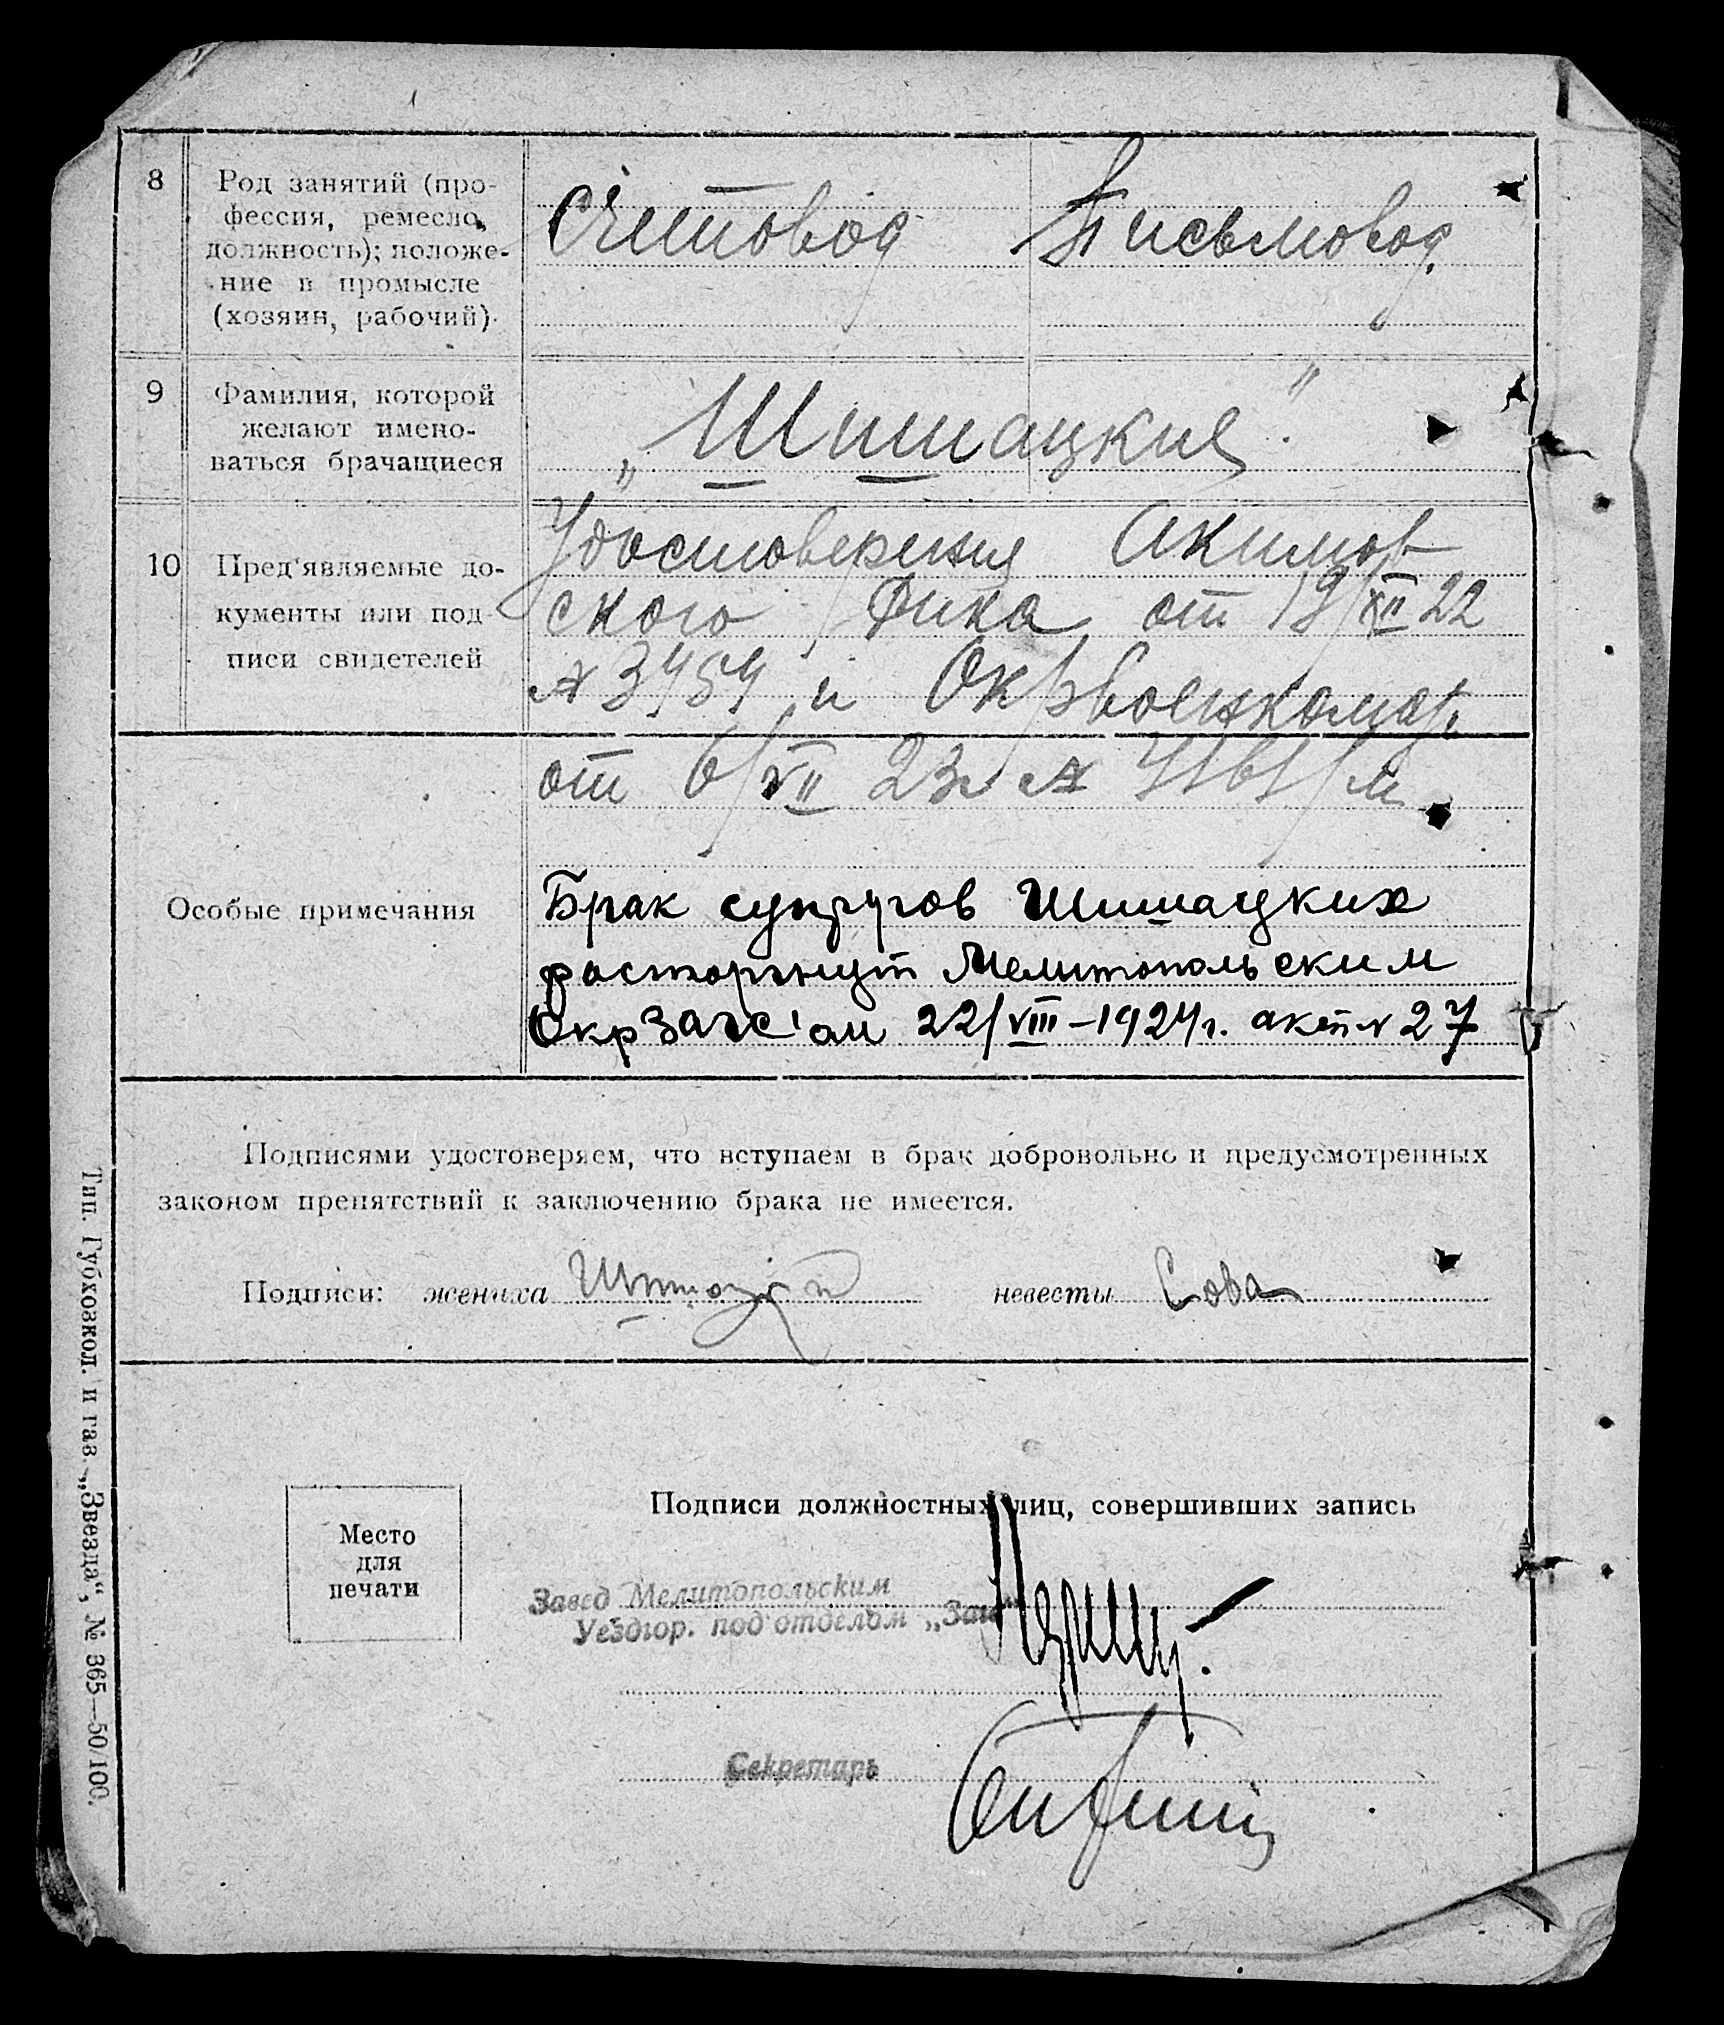 8 Род занятий (про-
фессия, ремесло,
должность); положе-
ние в промысле
(хозяин, рабочий)
Счетовод Письмовод
9 Фамилия, которой
желают имено-
ваться брачащиеся
„Шишацкие".
10 Пред'являемые до-
кументы или под-
писи свидетелей
Удостоверения Акимов-
ского Рика от 19/XII 22
№ 3454 и Окрвоенкомат.
от 6/XII 23г. №
Особые примечания
Брак супругов Шишацких
расторгнут Мелитопольским
ОкрЗагс'ом 22/VIII–1924г. акт № 27
Подписями удостоверяем, что вступаем в брак добровольно и предусмотренных
законом препятствий к заключению брака не имеется.
Подписи: жениха Шишацкий невесты Сова
Подписи должностных лиц, совершивших запись
Место
для
печати
Завед Мелитопольским
Уездгор. под'отделом „Загс"
Секретарь
Тип. Губхозкол. и газ. „Звезда", № 365—50/100.